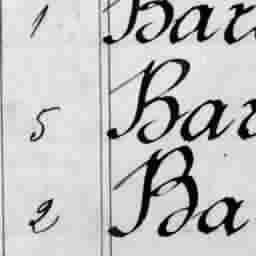 1 Bar
5 Bar
2 Ba